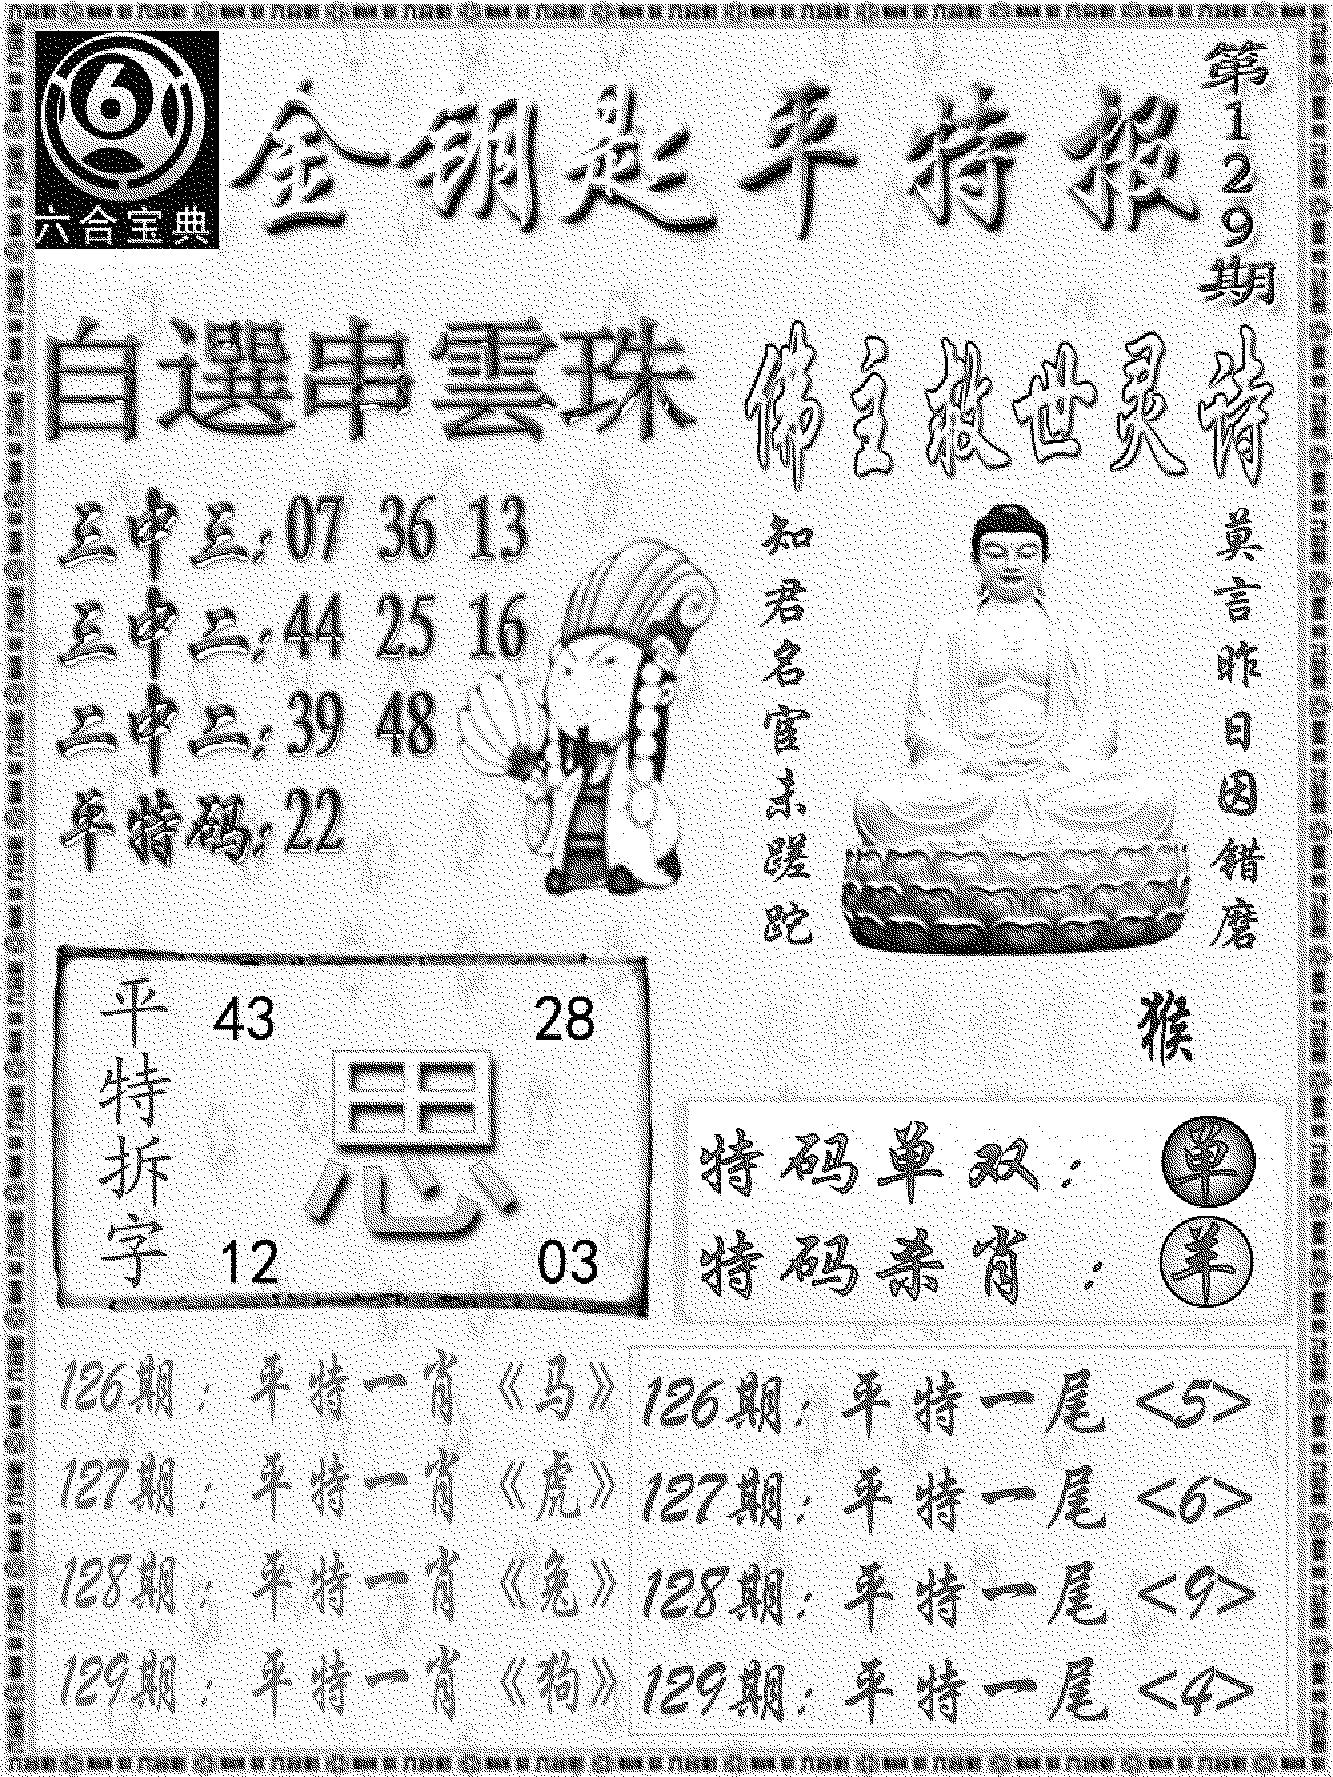 六合宝典
金钥匙平特报
第129期
自選串雲珠
三中三:07 36 13
三中二:44 25 16
二中二:39 48
单特码:22
佛主救世灵诗
莫言昨日因错磨
知君名宦未蹉跎
猴
平特拆字
43 28
思
12 03
特码单双:单
特码杀肖:羊
126期:平特一肖《马》
127期:平特一肖《虎》
128期:平特一肖《兔》
129期:平特一肖《狗》
126期:平特一尾<5>
127期:平特一尾<6>
128期:平特一尾<9>
129期:平特一尾<4>